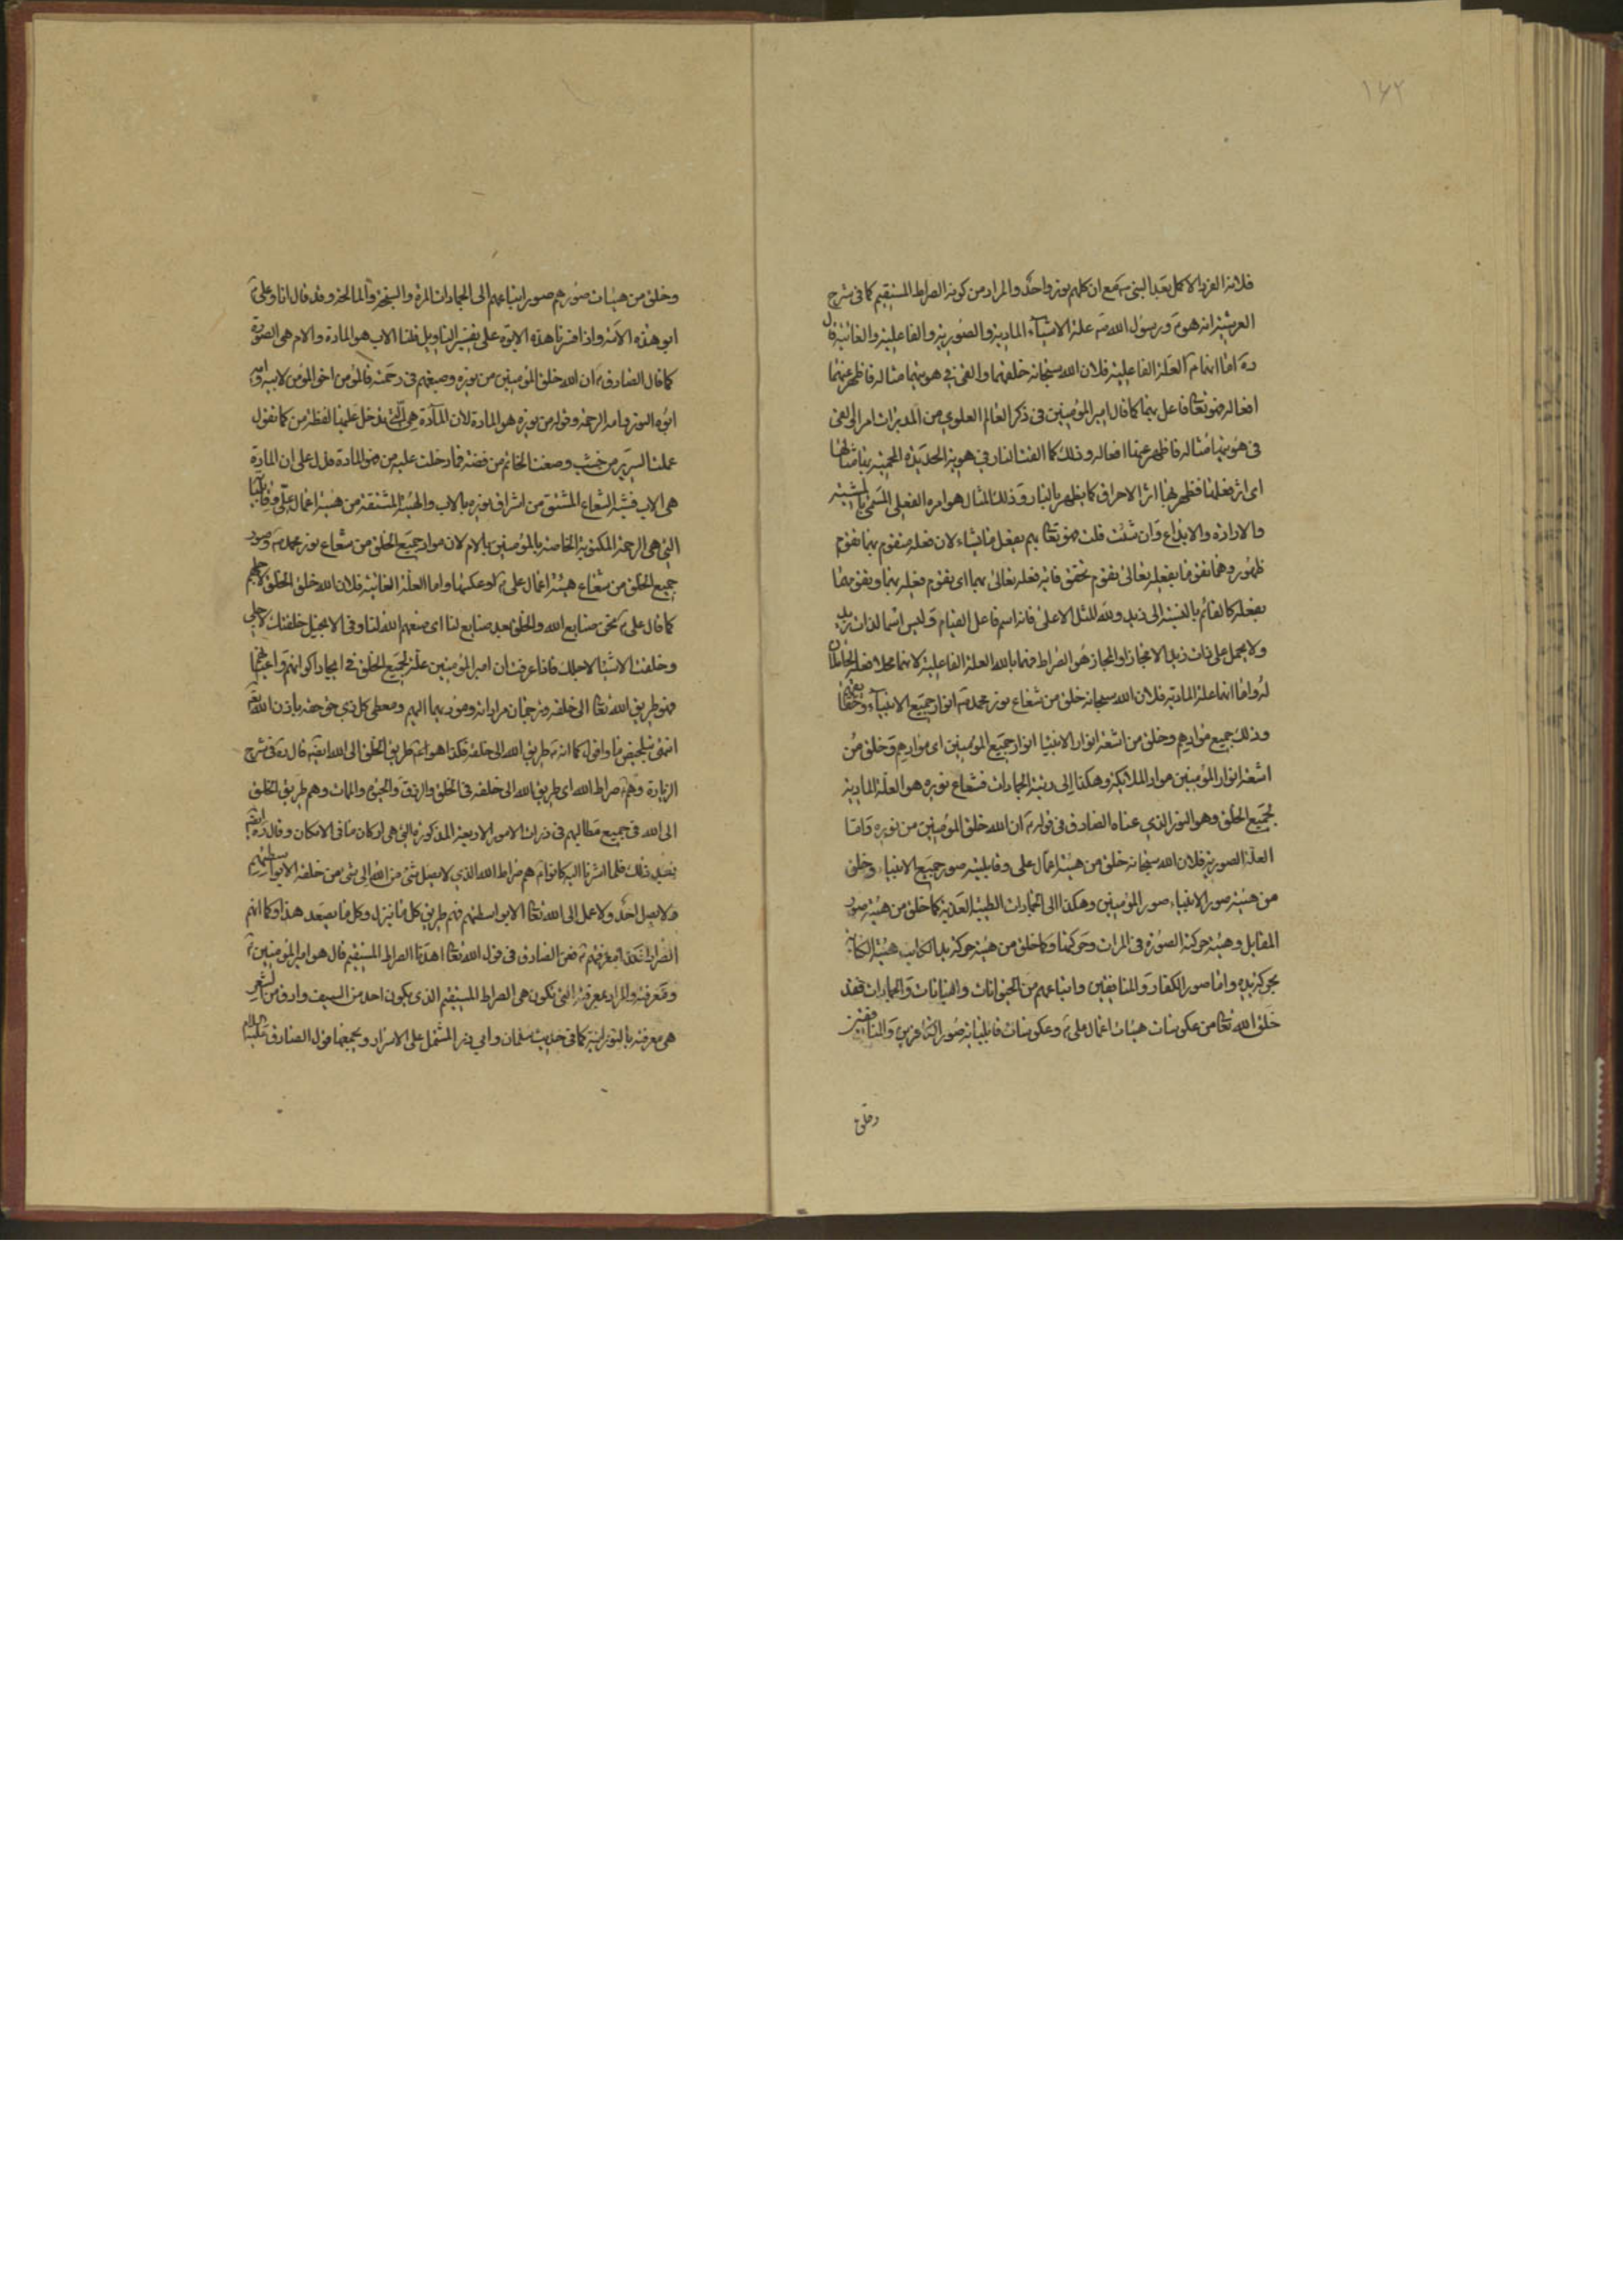 ۱۶۲
فلانه الفرد الاكمل بعد النبی ص مع ان كلهم نور واحد والمراد من كونه الصراط المستقیم كما فی شرح
العرشیة انه هو ع ورسول الله ص علة الاشیاء المادیة والصوریة والفاعلیة والغائیة قال
ره اما انهما ع العلة الفاعلیة فلان الله سبحانه خلقهما والقی فی هویتهما مثاله فاظهر عنهما
افعاله فهو تعا فاعل بهما كما قال امیر المؤمنین فی ذكر العالم العلوی من المدبرات امرا والقی
فی هویتها مثاله فاظهر عنها افعاله وذلك كما القت النار فی هویة الحدیدة المحمیة بها مثالها
ای اثر فعلها فظهر بها اثر الاحراق كما یظهر بالنار وذلك المثال هو امره الفعلی المسمی بالمشیة
والارادة والابداع وان شئت قلت فهو تعا بهم یفعل ما یشاء لان فعله متقوم بهما تقوم
ظهور وهما تقوما بفعله تعالی تقوم تحقق فانه فعله تعالی بهما ای یقوم فعله بهما وتقوما
بفعله كالقائم بالنسبة الی زید ولله المثل الاعلی فانه اسم فاعل القیام ولیس اسما لذات زید
ولا یحمل علی ذات زید الا مجازا والمجاز هو الصراط فهما بالله العلة الفاعلیة لانهما محلا فعله الحاملان
له واما انهما علة المادیة فلان الله سبحانه خلق من شعاع نور محمد ص انوار جمیع الانبیاء
وذلك جمیع موادهم وخلق من اشعة انوار الانبیا انوار جمیع المؤمنین ای موادهم وخلق من
اشعة انوار المؤمنین مواد الملائكة وهكذا الی رتبة الجمادات فشعاع نوره هو العلة المادیة
لجمیع الخلق وهو النور الذی عناه الصادق فی قوله ع ان الله خلق المؤمنین من نوره واما
العلة الصوریة فلان الله سبحانه خلق من هیئة اعمال علی وقابلیته صور جمیع الانبیاء وخلق
من هیئة صور الانبیاء صور المؤمنین وهكذا الی الجمادات الطیبة العذبة كما خلق من هیئة صورة
المقابل وهیئة حركته الصورة فی المرات وحركتها وكما خلق من هیئة حركة ید الكاتب هیئة الكتابة
بحركة یده واما صور الكفار والمنافقین واتباعهم من الحیوانات والنباتات والجمادات فقد
خلق الله تعا من عكوسات هیئات اعمال علی ع وعكوسات قابلیاته صور الكافرین والمنافقین
وخلق
وخلق من هیئات صورهم صور اتباعهم الی الجمادات المرة والسبخة والمالحة وقد قال انا وعلی ع
ابوا هذه الامة واذا فسرنا هذه الابوة علی تفسیر التاویل قلنا الاب هو المادة والام هی الصورة
كما قال الصادق ع ان الله خلق المؤمنین من نوره وصبغهم فی رحمته فالمؤمن اخو المؤمن لابیه وامه
ابوه النور وامه الرحمة وقوله من نوره هو المادة لان المادة هی التی یدخل علیها لفظة من كما تقول
عملت السریر من خشب وصغت الخاتم من فضة فما دخلت علیه من هو المادة فدل علی ان المادة
هی الاب فشبه الشعاع المشتق من اشراق نوره بالاب والهیئة المشتقة من هیئة اعمال علی وقابلیته
التی هی الرحمة المكتوبة الخاصة بالمؤمنین بالام لان مواد جمیع الخلق من شعاع نور محمد ص وصور
جمیع الخلق من شعاع هیئة اعمال علی ع او عكسها واما العلة الغائیة فلان الله خلق الخلق لاجلهم
كما قال علی ع نحن صنایع الله والخلق بعد صنایع لنا ای صنعهم الله لنا وفی الانجیل خلقتك لاجلی
وخلقت الاشیا لاجلك فاذا عرفت ان امیر المؤمنین علة لجمیع الخلق فی ایجاد اكوانهم واعیانهم
فهو طریق الله تعا الی خلقه وترجمان مراداته ومؤدیها الیهم ومعطی كل ذی حق حقه باذن الله تعا
انتهی بتلخیص ما واقول كما انه ع طریق الله الی خلقه فكذا هو ع طریق الخلق الی الله ایضا قال ره فی شرح
الزیارة وهم ع صراط الله ای طریق الله الی خلقه فی الخلق والرزق والحیوة والممات وهم طریق الخلق
الی الله فی جمیع مطالبهم فی ذرات الامور الاربعة المذكورة التی هی اركان ما فی الامكان وقال ره ایضا
بعد ذلك فلما اشرنا الیه كانوا ع هم صراط الله الذی لا یصل شئ من الله الی شئ من خلقه الا بواسطتهم
ولا یصل احد ولا عمل الی الله تعا الا بواسطتهم فهم طریق كل ما ینزل وكل ما یصعد هذا وكما انهم
الصراط فكذا معرفتهم ع فعن الصادق فی قول الله تعا اهدنا الصراط المستقیم قال هو امیر المؤمنین ع
ومعرفته والمراد بمعرفته التی تكون هی الصراط المستقیم الذی یكون احد من السیف وادق من الشعر
هی معرفته بالنورانیة كما فی حدیث سلمان وابی ذر المشتمل علی الاسرار ویجمعها قول الصادق علیه السلام